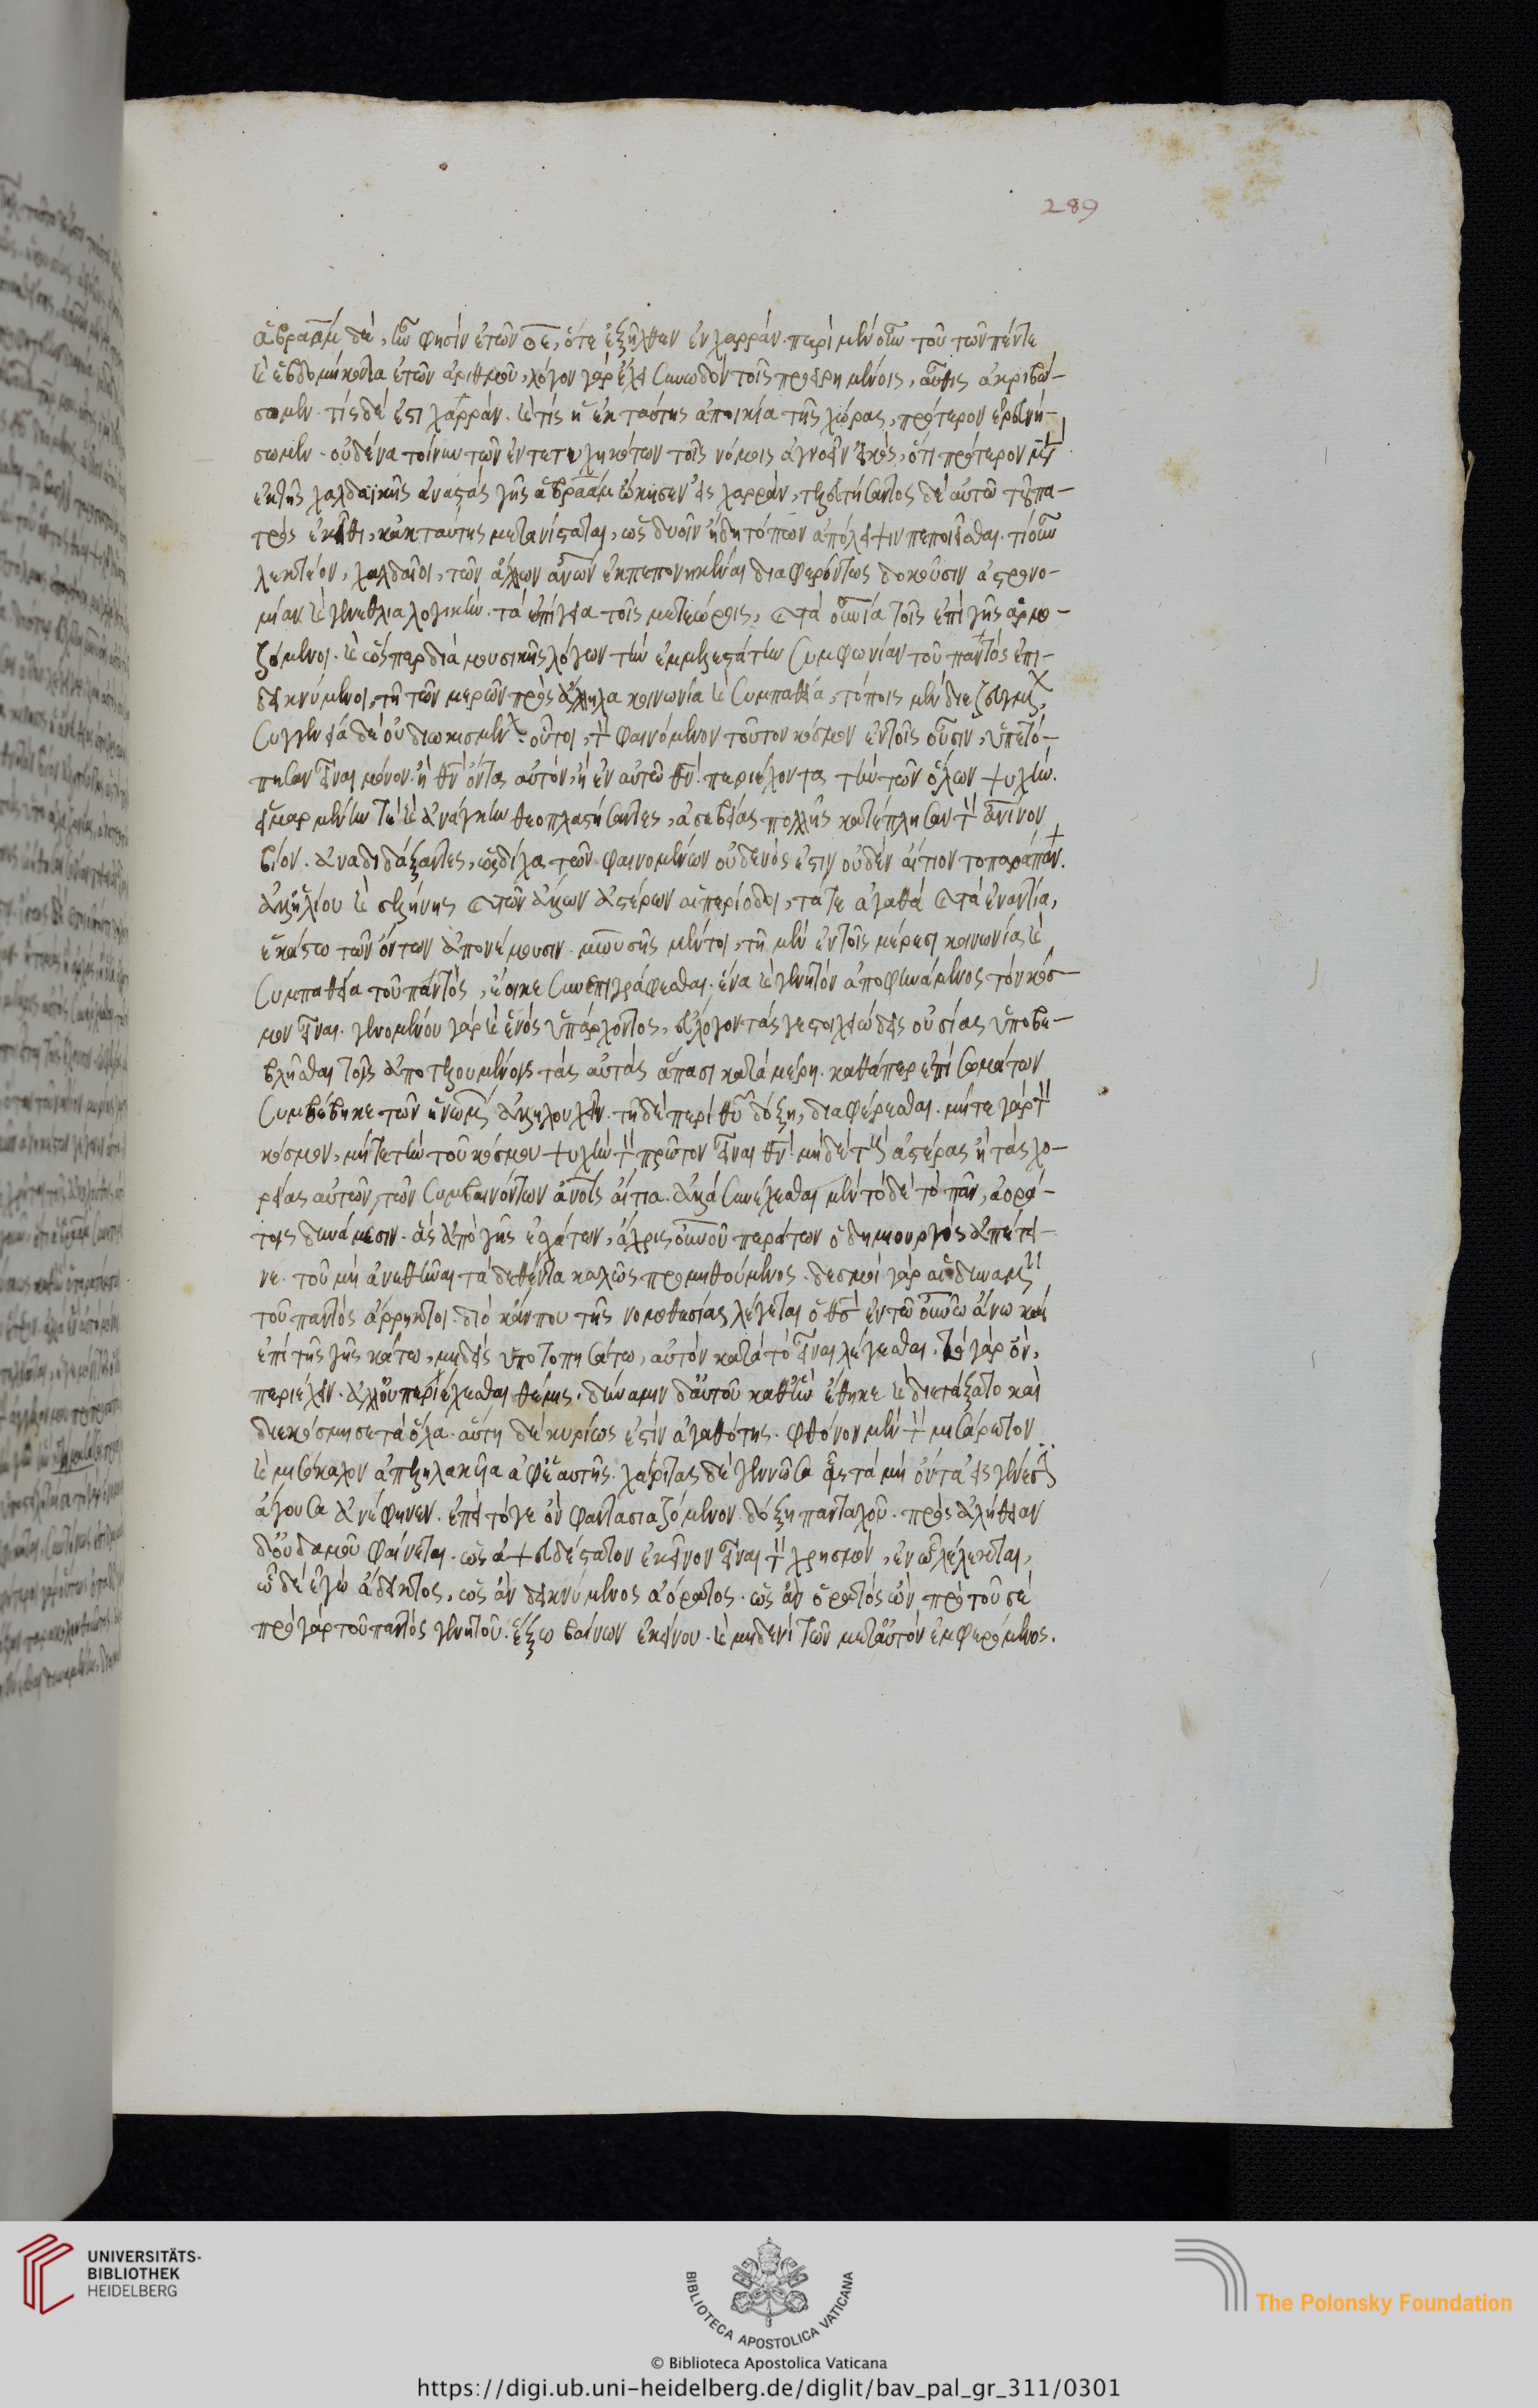 ἀβραὰμ δὲ, ἦν φησὶν ἐτῶν οε, ὅτε ἐξῆλθεν ἐκ χαρράν. περὶ μὲν οὖν τοῦ τῶν πέντε
καὶ ἑβδομήκοντα ἐτῶν ἀριθμοῦ, λόγον γὰρ ἔχει συνωδὸν τοῖς προειρημένοις, αὖθις ἀκριβώ-
σωμεν. τίς δέ ἐστι χαρράν. καὶ τίς ἡ ἐκ ταύτης ἀποικία τῆς χώρας, πρότερον ἐρευνή-
σωμεν. οὐδένα τοίνυν τῶν ἐντετυχηκότων τοῖς νόμοις ἀγνοεῖν εἰκός, ὅτι πρότερον μὲν
ἐκ τῆς χαλδαϊκῆς ἀναστὰς γῆς ἀβραὰμ ὤκησεν εἰς χαρράν, τελευτήσαντος δὲ αὐτῶ τοῦ πα-
τρὸς ἐκεῖθι, κἀκ ταύτης μετανίσταται, ὡς δυοῖν ἤδη τόπων ἀπόλειψιν πεποιεῖσθαι. τί οὖν
λεκτέον, χαλδαῖοι, τῶν ἄλλων ἀνων ἐκπεπονηκέναι διαφερόντως δοκοῦσιν ἀστρονο-
μίαν καὶ γενεθλιαλογικὴν. τὰ ἐπίγεια τοῖς μετεώροις, καὶ τὰ οὐνια τοῖς ἐπὶ γῆς ἁρμο-
ζόμενοι. καὶ ὥσπερ διὰ μουσικῆς λόγων τὴν ἐμμελεστάτην συμφωνίαν τοῦ παντὸς ἐπι-
δεικνύμενοι, τῆ τῶν μερῶν πρὸς ἄλληλα κοινωνία καὶ συμπαθεία, τόποις μὲν διεζευγμέν,
συγγενεία δὲ οὐ διωκισμέν. οὗτοι, τὸν φαινόμενον τοῦτον κόσμον ἐν τοῖς οὖσιν, ὑπετό-
πησαν εἶναι μόνον. ἢ θν ὄντα αὐτόν, ἢ ἐν αὐτῶ θν περιέχοντα τὴν τῶν ὅλων ψυχήν.
εἱμαρμένην τὲ καὶ ἀνάγκην θεοπλαστήσαντες, ἀσεβείας πολλῆς κατέπλησαν τὸν ἀνινον
βίον. ἀναδιδάξαντες, ὡς δίχα τῶν φαινομένων οὐδενός ἐστιν οὐδὲν αἴτιον τοπαράπαν.
ἀλλ' ἡλίου καὶ σελήνης καὶ τῶν ἄλλων ἀστέρων αἱ περίοδοι, τά τε ἀγαθὰ καὶ τὰ ἐναντία,
ἑκάστω τῶν ὄντων ἀπονέμουσιν. μωυσῆς μέντοι, τῆ μὲν ἐν τοῖς μέρεσι κοινωνία καὶ
συμπαθεία τοῦ παντὸς, ἔοικε συνεπιγράφεσθαι. ἕνα καὶ γενητὸν ἀποφηνάμενος τὸν κόσ-
μον εἶναι. γενομένου γὰρ καὶ ἑνὸς ὑπάρχοντος, εὔλογον τάς γε στοιχειώδεις οὐσίας ὑποβε-
βλῆσθαι τοῖς ἀποτελουμένοις τὰς αὐτὰς ἅπασι κατὰ μέρη. καθάπερ ἐπὶ σωμάτων
συμβέβηκε τῶν ἡνωμέ ἀλληλουχεῖν. τῆ δὲ περὶ θυ δόξη, διαφέρεσθαι. μήτε γὰρ τὸν
κόσμον, μήτε τὴν τοῦ κόσμου ψυχὴν τὸν πρῶτον εἶναι θν μηδὲ τοὺς ἀστέρας ἢ τὰς χο-
ρείας αὐτῶν, τῶν συμβαινόντων ἀνοις αἴτια. ἀλλὰ συνέχεσθαι μὲν τόδε τὸ πᾶν, ἀορά-
τοις δυνάμεσιν. ἃς ἀπὸ γῆς ἐσχάτων, ἄχρις οὐνοῦ περάτων ὁ δημιουργὸς ἀπέτει-
νε. τοῦ μὴ ἀνεθῆναι τὰ δεθέντα καλῶς προμηθούμενος. δεσμοὶ γὰρ αἱ δυνάμεις
τοῦ παντὸς ἄρρηκτοι. διὸ κἄν που τῆς νομοθεσίας λέγεται ὁ θς ἐν τῶ οὐνῶ ἄνω καὶ
ἐπὶ τῆς γῆς κάτω, μηδεὶς ὑποτοπησάτω, αὐτὸν κατὰ τὸ εἶναι λέγεσθαι. τὸ γὰρ ὂν,
περιέχειν. ἀλλ' οὐ περιέχεσθαι θέμις. δύναμιν δ' αὐτοῦ καθ' ἣν ἔθηκε καὶ διετάξατο καὶ
διεκόσμησε τὰ ὅλα. αὕτη δὲ κυρίως ἐστὶν ἀγαθότης. φθόνον μὲν τὸν μισάρετον
καὶ μισόκαλον ἀπεληλακυῖα ἀφ' ἑαυτῆς. χάριτας δὲ γεννῶσα αἷς τὰ μὴ ὄντα εἰς γένεσιν
ἄγουσα ἀνέφηνεν. ἐπεὶ τό γε ὂν φαντασιαζόμενον δόξη πανταχοῦ. πρὸς ἀλήθειαν
δ' οὐδαμοῦ φαίνεται. ὡς ἀψευδέστατον ἐκεῖνον εἶναι τὸν χρησμόν, ἐν ὧ λέλεκται,
ὧδε ἐγώ ἄδεικτος, ὡς ἂν δεικνύμενος ἀόρατος. ὡς ἂν ὁρατὸς ὢν πρὸ τοῦ σέ
πρὸ γὰρ τοῦ παντὸς γενητοῦ. ἔξω βαίνων ἐκείνου. καὶ μηδενὶ τῶν μετ' αὐτὸν ἐμφερόμενος.
289
UNIVERSITÄTS-
BIBLIOTHEK
HEIDELBERG
BIBLIOTECA APOSTOLICA VATICANA
© Biblioteca Apostolica Vaticana
The Polonsky Foundation
https://digi.ub.uni-heidelberg.de/diglit/bav_pal_gr_311/0301